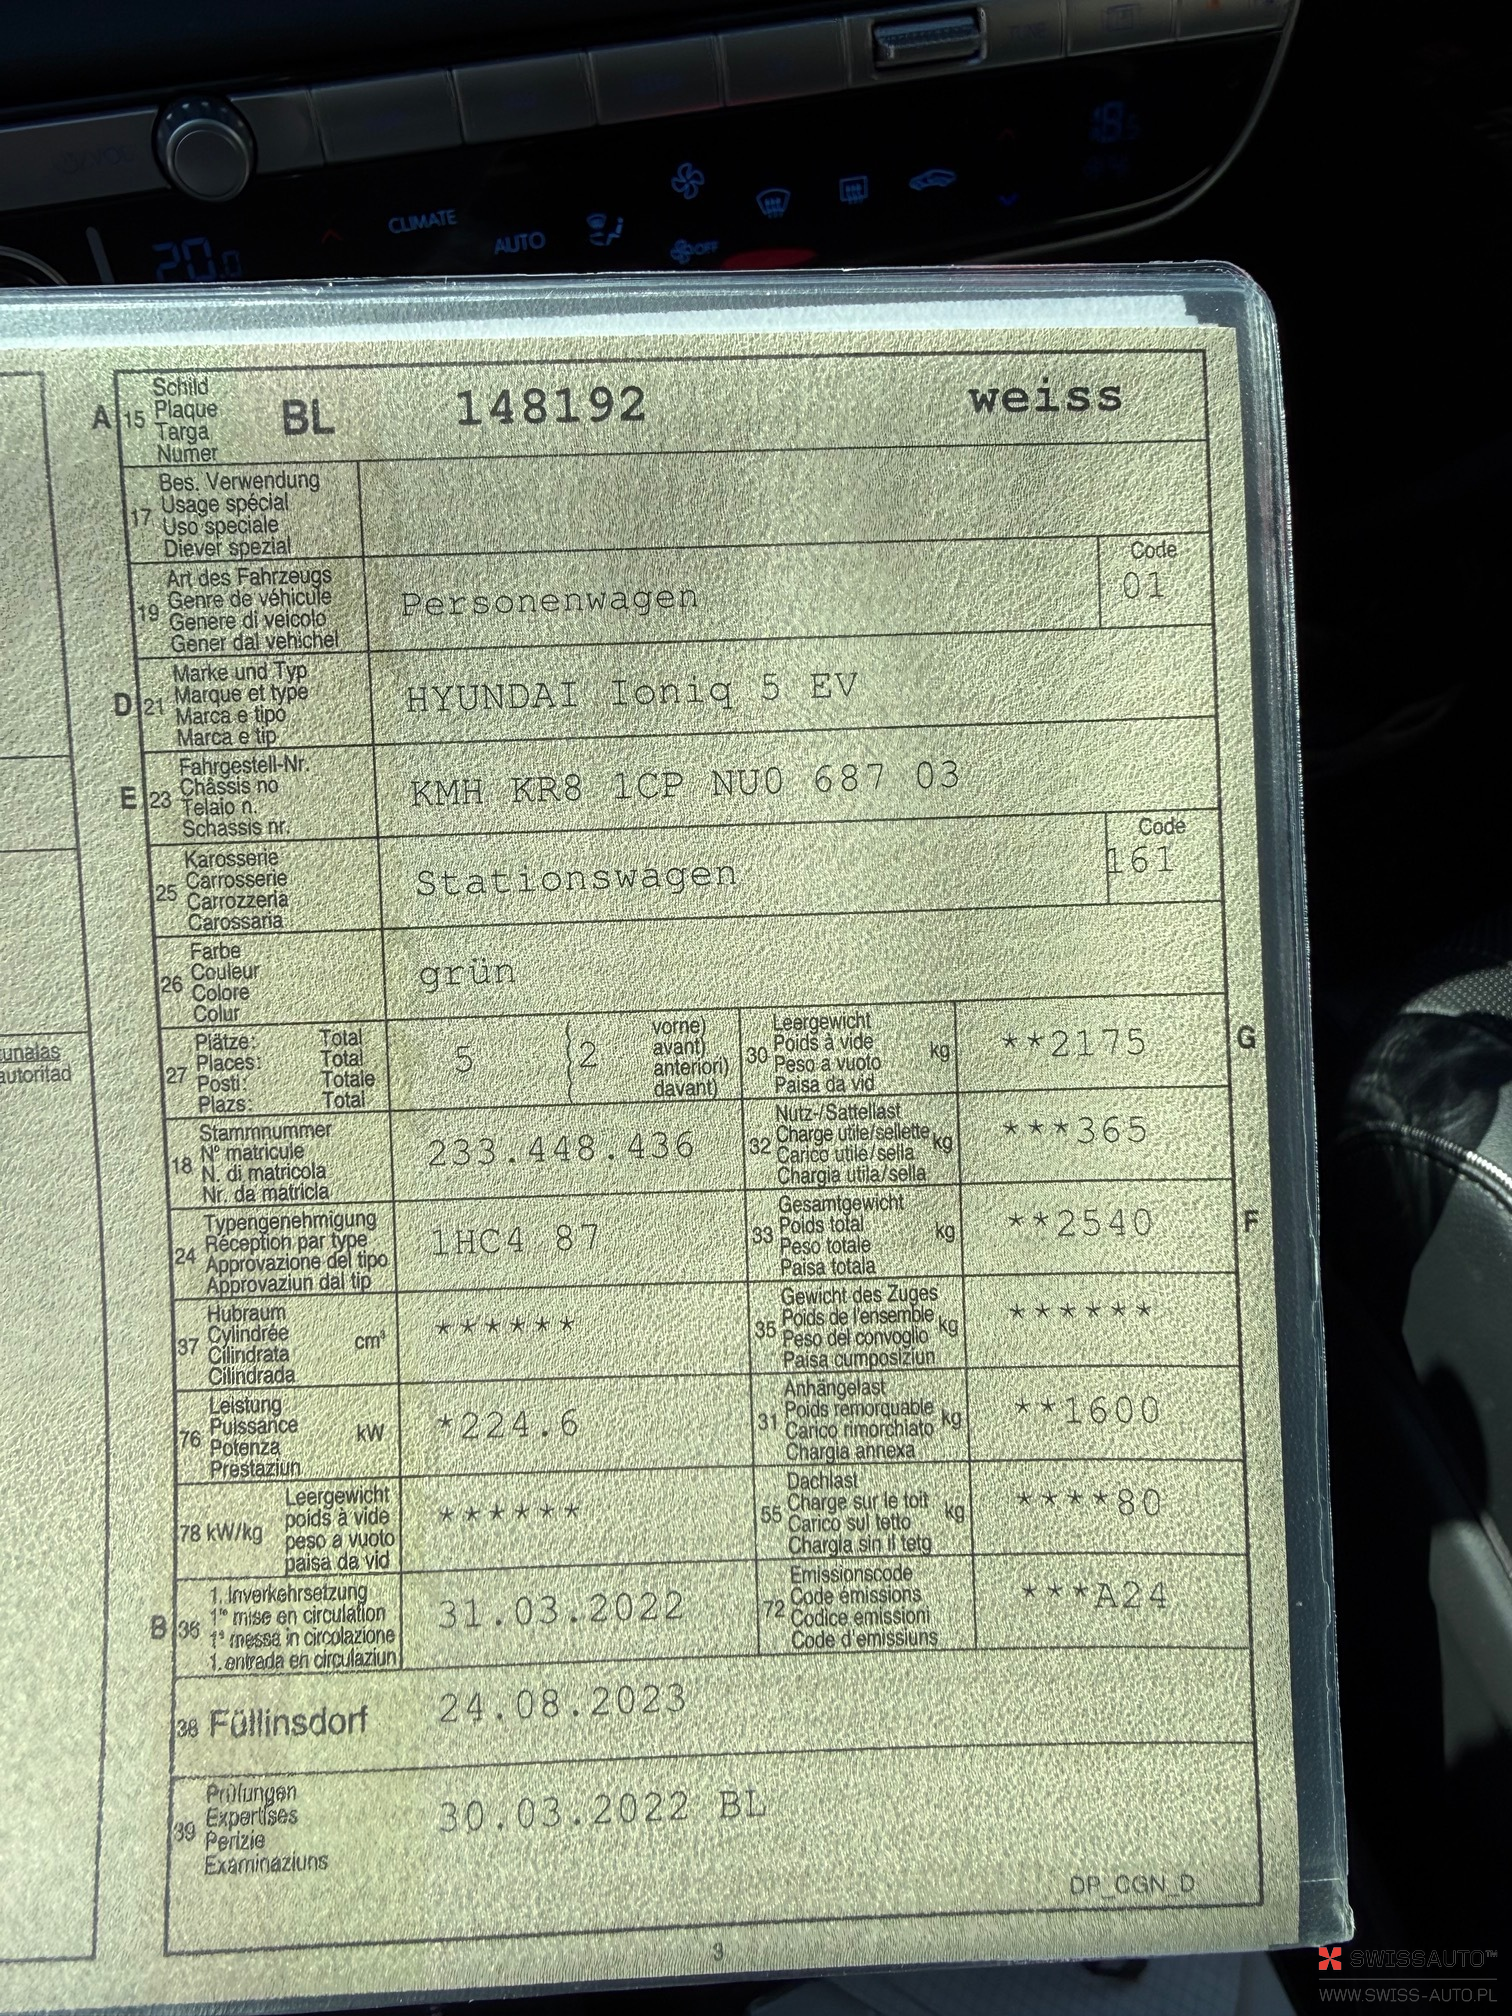 CLIMATE
AUTO
OFF
20.0
A 15 Schild
Plaque
Targa
Numer
BL 148192 weiss
17 Bes. Verwendung
Usage spécial
Uso speciale
Diever spezial
19 Art des Fahrzeugs
Genre de véhicule
Genere di veicolo
Gener dal vehichel
Personenwagen
Code
01
D 21 Marke und Typ
Marque et type
Marca e tipo
Marca e tip
HYUNDAI Ioniq 5 EV
E 23 Fahrgestell-Nr.
Châssis no
Telaio n.
Schassis nr.
KMH KR8 1CP NU0 687 03
25 Karosserie
Carrosserie
Carrozzeria
Carossaria
Stationswagen
Code
161
26 Farbe
Couleur
Colore
Colur
grün
27 Plätze: Total
Places: Total
Posti: Totale
Plazs: Total
5 2
vorne)
avant)
anteriori)
davant)
30 Leergewicht
Poids à vide
Peso a vuoto
Paisa da vid
kg
**2175
G
18 Stammnummer
N° matricule
N. di matricola
Nr. da matricla
233.448.436
32 Nutz-/Sattellast
Charge utile/sellette
Carico utile/sella
Chargia utila/sella
kg
***365
24 Typengenehmigung
Réception par type
Approvazione del tipo
Approvaziun dal tip
1HC4 87
33 Gesamtgewicht
Poids total
Peso totale
Paisa totala
kg
**2540
F
37 Hubraum
Cylindrée
Cilindrata
Cilindrada
cm³
******
35 Gewicht des Zuges
Poids de l'ensemble
Peso del convoglio
Paisa cumposiziun
kg
******
76 Leistung
Puissance
Potenza
Prestaziun
kW
*224.6
31 Anhängelast
Poids remorquable
Carico rimorchiato
Chargia annexa
kg
**1600
78 kW/kg
Leergewicht
poids à vide
peso a vuoto
paisa da vid
******
55 Dachlast
Charge sur le toit
Carico sul tetto
Chargia sin il tetg
kg
****80
B 36 1. Inverkehrsetzung
1re mise en circulation
1a messa in circolazione
1. entrada en circulaziun
31.03.2022
72 Emissionscode
Code émissions
Codice emissioni
Code d'emissiuns
***A24
38 Füllinsdorf
24.08.2023
39 Prüfungen
Expertises
Perizie
Examinaziuns
30.03.2022 BL
DP_CGN_D
3
unalas
autoritad
SWISSAUTO™
WWW.SWISS-AUTO.PL